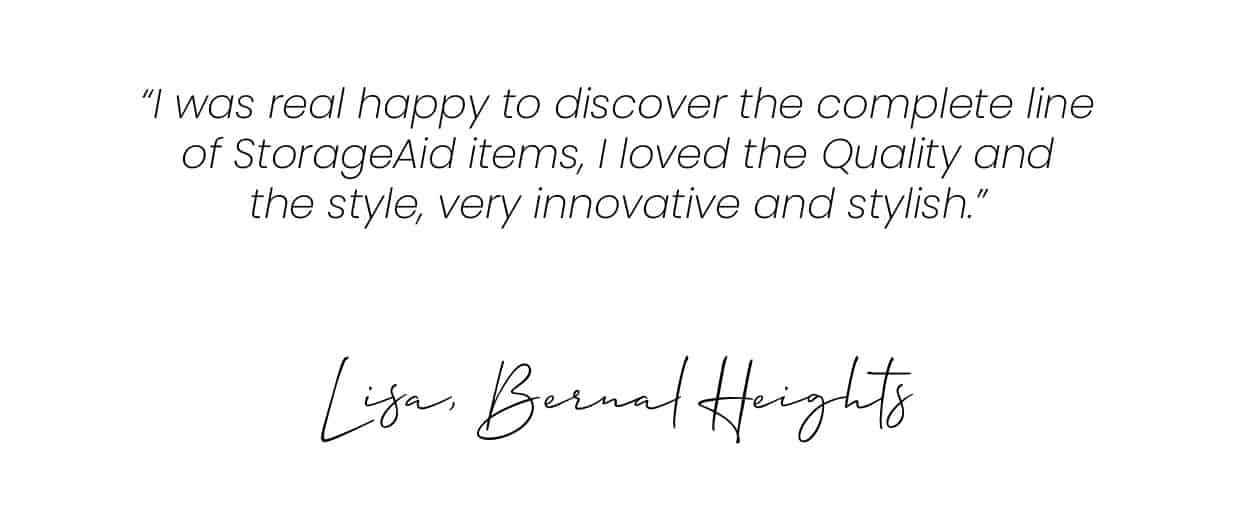 “I was real happy to discover the complete line
of StorageAid items, I loved the Quality and
the style, very innovative and stylish.”
Lisa, Bernal Heights